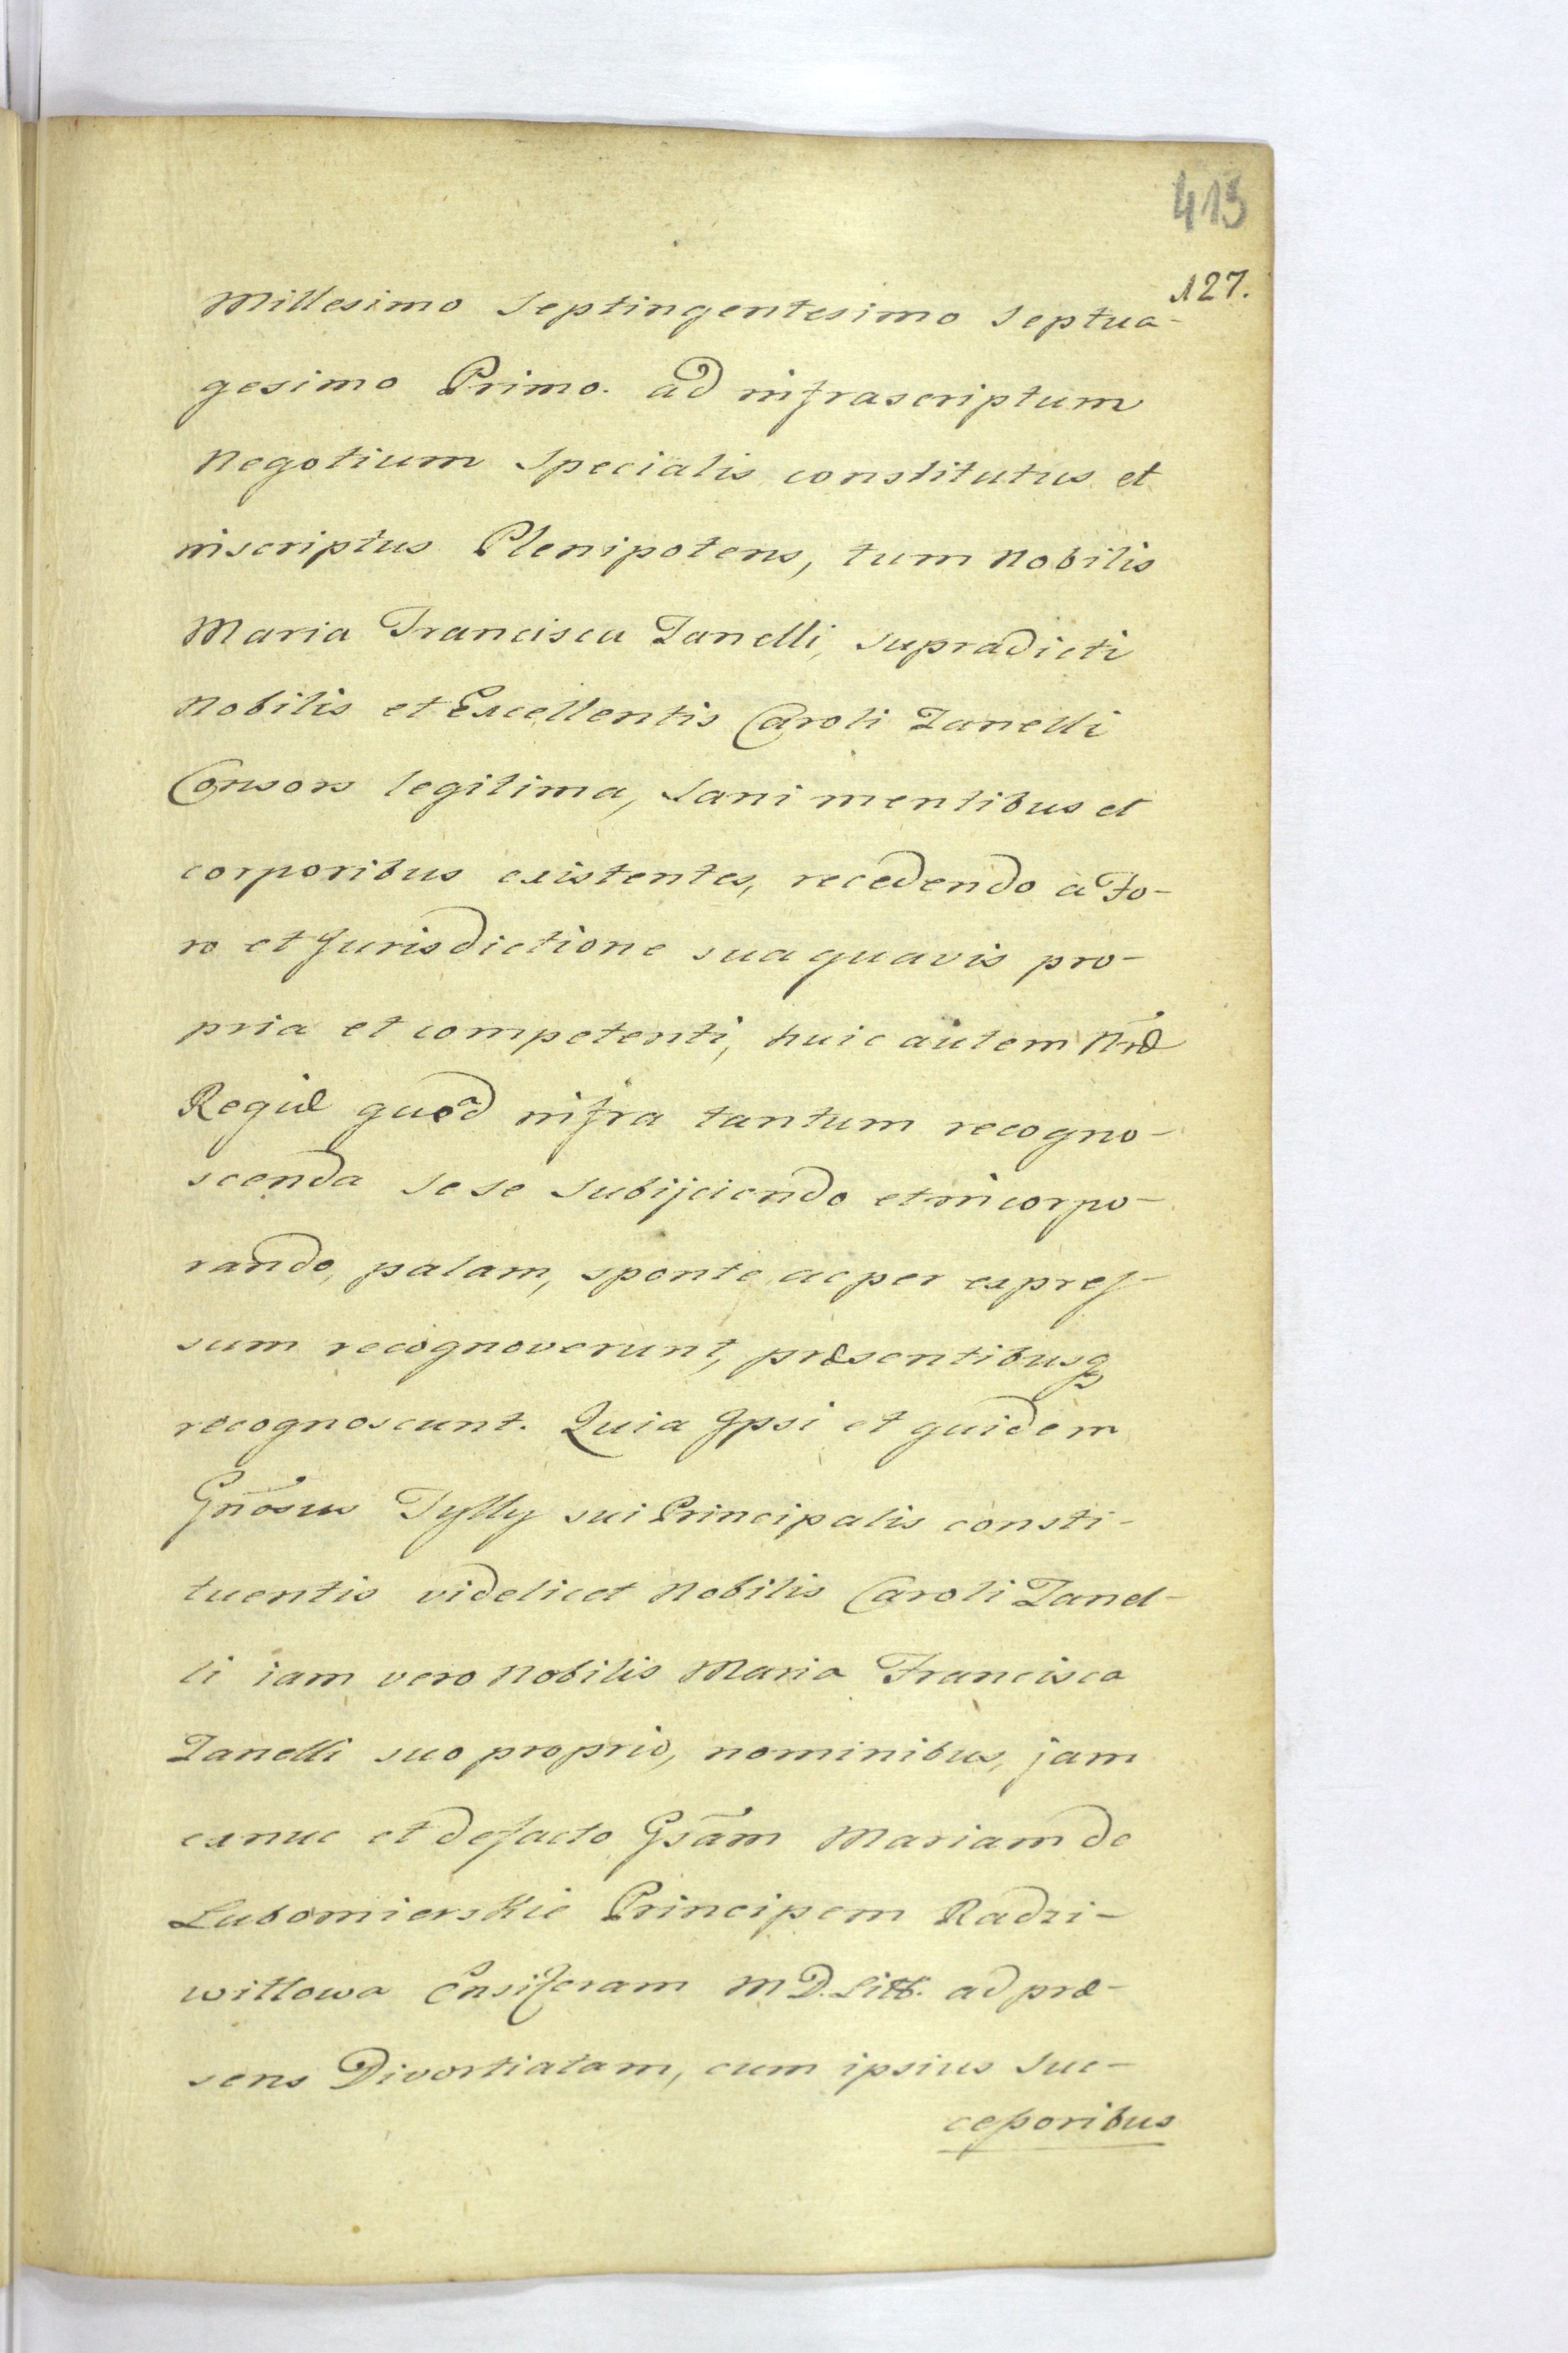 413
127.
Millesimo Septingentesimo Septua-
gesimo Primo. ad infrascriptum
Negotium Specialis constitutus et
inscriptus Plenipotens, tum Nobilis
Maria Francisca Zanelli, Supradicti
Nobilis et Excellentis Caroli Zanelli
Consors legitima, Sani mentibus et
corporibus existentes, recedendo a Fo-
ro et Jurisdictione sua quavis pro-
pria et competenti, huic autem Nræ
Regiæ quoad infra tantum recogno-
scenda sese Subijciendo et incorpo-
rando, palam, sponte ac per expres-
sum recognoverunt, præsentibusq
recognoscunt. Quia Ipsi et quidem
Gnosus Tylly sui Principalis consti-
tuentis videlicet Nobilis Caroli Zanel-
li iam vero Nobilis Maria Francisca
Zanelli suo proprio, nominibus, jam
exnuc et defacto Gsam Mariam de
Lubomierskie Principem Radzi-
wiłłowa Ensiferam M D. Litt. ad præ-
sens Divortiatam, cum ipsius Suc-
cessoribus